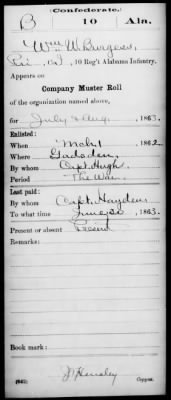 Confederate.
B 10 Ala.
Wm W. Burgess
Pvt, Co. , 10 Reg't Alabama Infantry.
Appears on
Company Muster Roll
of the organization named above,
for July & Aug, 1863.
Enlisted:
When Mch 1 1862
Where Gadsden
By whom Capt. Hugh
Period The War
Last paid:
By whom Capt. Hayden
To what time June 30 1863.
Present or absent Present
Remarks:
Book mark:
(642) J. Hensley
Copyist.